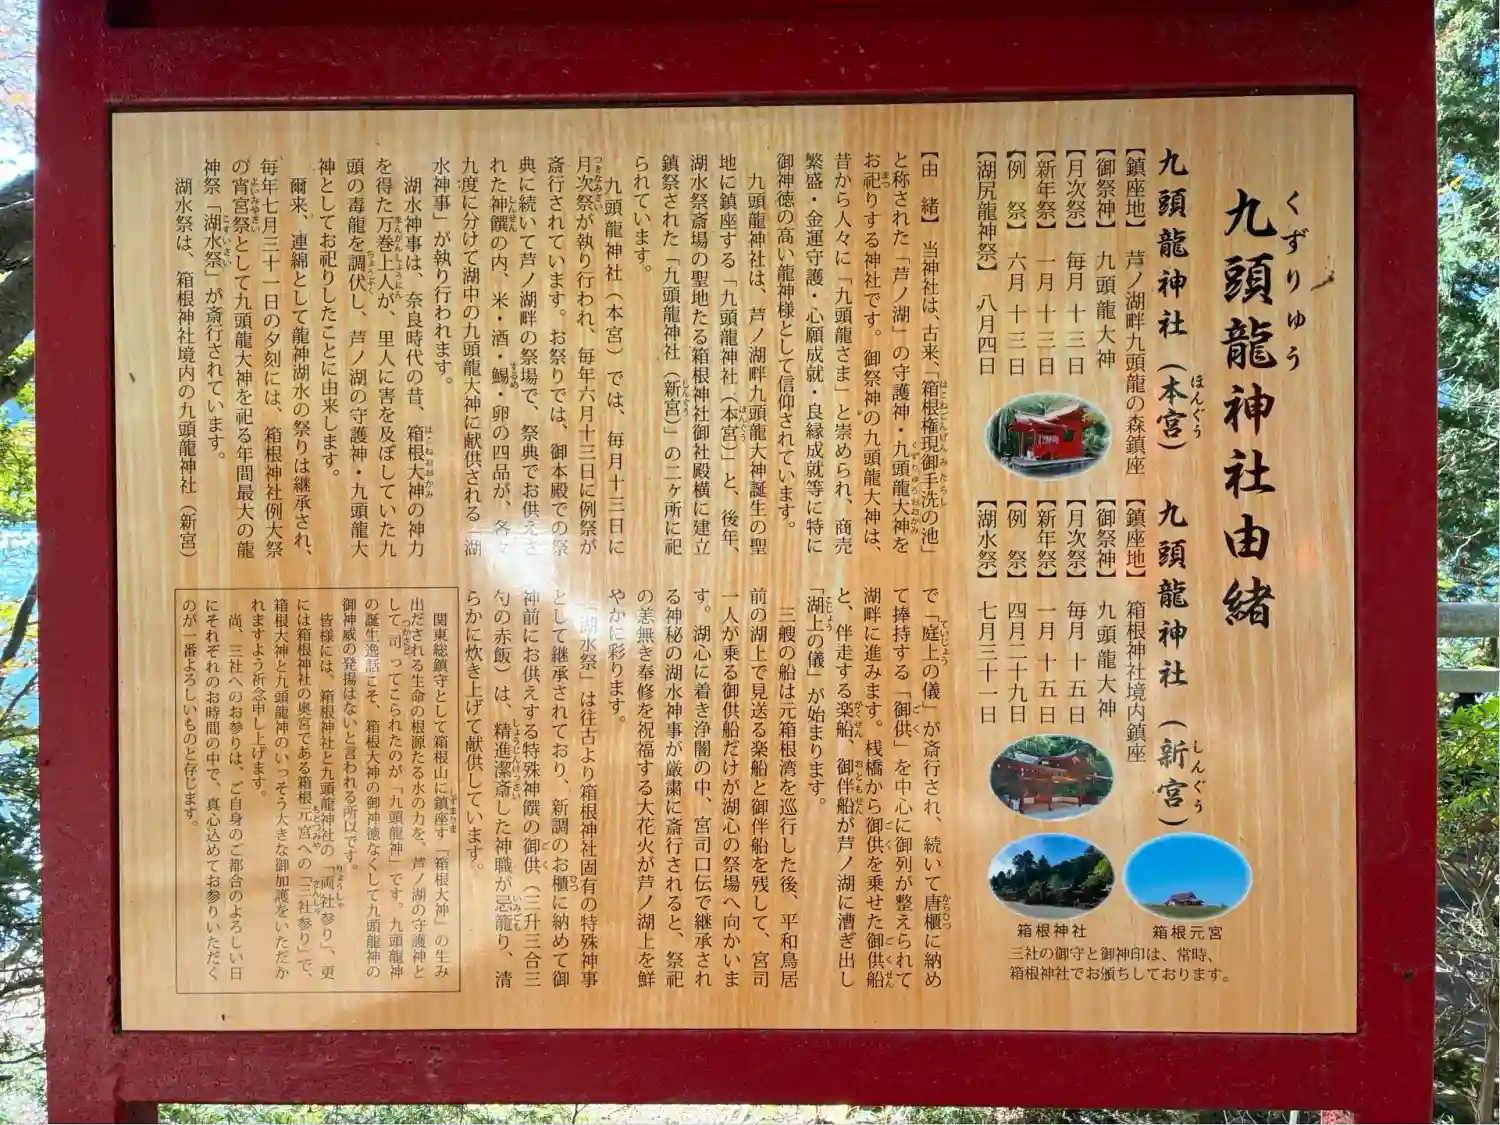 九頭龍神社由緒
九頭龍神社（本宮）
【鎮座地】　芦ノ湖畔九頭龍の森鎮座
【御祭神】　九頭龍大神
【月次祭】　毎月　十三日
【新年祭】　一月　十三日
【例　祭】　六月　十三日
【湖尻龍神祭】　八月四日
九頭龍神社（新宮）
【鎮座地】　箱根神社境内鎮座
【御祭神】　九頭龍大神
【月次祭】　毎月　十五日
【新年祭】　一月　十五日
【例　祭】　四月二十九日
【湖水祭】　七月三十一日
箱根元宮
箱根神社
三社の御守と御神印は、常時、
箱根神社でお頒ちしております。
【由　緒】　当神社は、古来、「箱根権現御手洗の池」
と称された「芦ノ湖」の守護神・九頭龍大神を
お祀りする神社です。御祭神の九頭龍大神は、
昔から人々に「九頭龍さま」と崇められ、商売
繁盛・金運守護・心願成就・良縁成就等に特に
御神徳の高い龍神様として信仰されています。
九頭龍神社は、芦ノ湖畔九頭龍大神誕生の聖
地に鎮座する「九頭龍神社（本宮）」と、後年、
湖水祭斎場の聖地たる箱根神社御社殿横に建立
鎮祭された「九頭龍神社（新宮）」の二ヶ所に祀
られています。
九頭龍神社（本宮）では、毎月十三日に
月次祭が執り行われ、毎年六月十三日に例祭が
斎行されています。お祭りでは、御本殿での祭
典に続いて芦ノ湖畔の祭場で、祭典でお供えさ
れた神饌の内、米・酒・鯣・卵の四品が、各々
九度に分けて湖中の九頭龍大神に献供される「湖
水神事」が執り行われます。
湖水神事は、奈良時代の昔、箱根大神の神力
を得た万巻上人が、里人に害を及ぼしていた九
頭の毒龍を調伏し、芦ノ湖の守護神・九頭龍大
神としてお祀りしたことに由来します。
爾来、連綿として龍神湖水の祭りは継承され、
毎年七月三十一日の夕刻には、箱根神社例大祭
の宵宮祭として九頭龍大神を祀る年間最大の龍
神祭「湖水祭」が斎行されています。
湖水祭は、箱根神社境内の九頭龍神社（新宮）
で「庭上の儀」が斎行され、続いて唐櫃に納め
て捧持する「御供」を中心に御列が整えられて
湖畔に進みます。桟橋から御供を乗せた御供船
と、伴走する楽船、御伴船が芦ノ湖に漕ぎ出し
「湖上の儀」が始まります。
三艘の船は元箱根湾を巡行した後、平和鳥居
前の湖上で見送る楽船と御伴船を残して、宮司
一人が乗る御供船だけが湖心の祭場へ向かいま
す。湖心に着き浄闇の中、宮司口伝で継承され
る神秘の湖水神事が厳粛に斎行されると、祭祀
の恙無き奉修を祝福する大花火が芦ノ湖上を鮮
やかに彩ります。
「湖水祭」は往古より箱根神社固有の特殊神事
として継承されており、新調のお櫃に納めて御
神前にお供えする特殊神饌の御供（三升三合三
勺の赤飯）は、精進潔斎した神職が忌龍り、清
らかに炊き上げて献供しています。
関東総鎮守として箱根山に鎮座す「箱根大神」の生み
出だされる生命の根源たる水の力を、芦ノ湖の守護神と
して司ってこられたのが「九頭龍神」です。九頭龍神
の誕生逸話こそ、箱根大神の御神徳なくして九頭龍神の
御神威の発揚はないと言われる所以です。
皆様には、箱根神社と九頭龍神社の「両社参り」、更
には箱根神社の奥宮である箱根元宮への「三社参り」で、
箱根大神と九頭龍神のいっそう大きな御加護をいただか
れますよう祈念申し上げます。
尚、三社へのお参りは、ご自身のご都合のよろしい日
にそれぞれのお時間の中で、真心込めてお参りいただく
のが一番よろしいものと存じます。